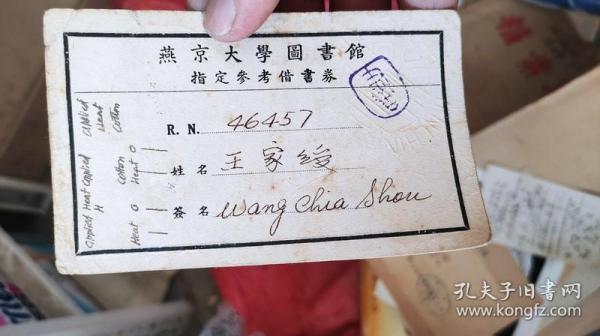 燕京大學圖書館
指定參考借書券
R. N. 46457
姓名 王家綬
簽名 Wang Chia Shou
Applied Heat Cotton
Applied Heat Applied H
Cotton Heat O
Heat O
孔夫子旧书网
www.kongfz.com